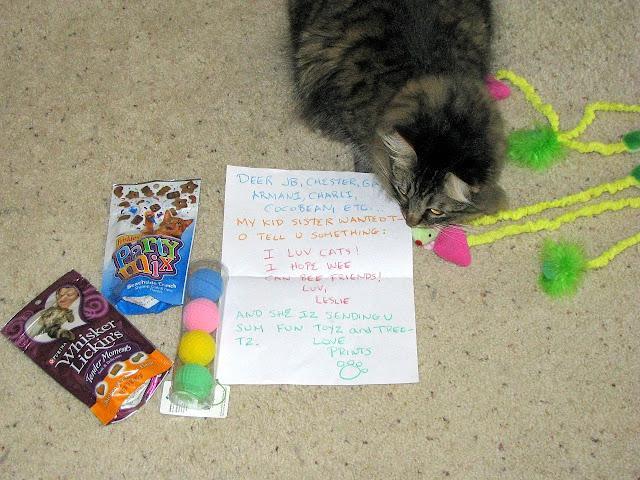 DEER JB, CHESTER, GA
ARMANI, CHARLI,
COCOBEAN, ETC.
MY KID SISTER WANTED T-
O TELL U SOMETHING:
I LUV CATS!
I HOPE WEE
CAN BEE FRIENDS!
LUV,
LESLIE
AND SHE IZ SENDING U
SUM FUN TOYZ and TREE-
TZ. LOVE
PRINTS
Party
mix
Beachside Crunch
PURINA
Whisker
Lickin's
Tender Moments